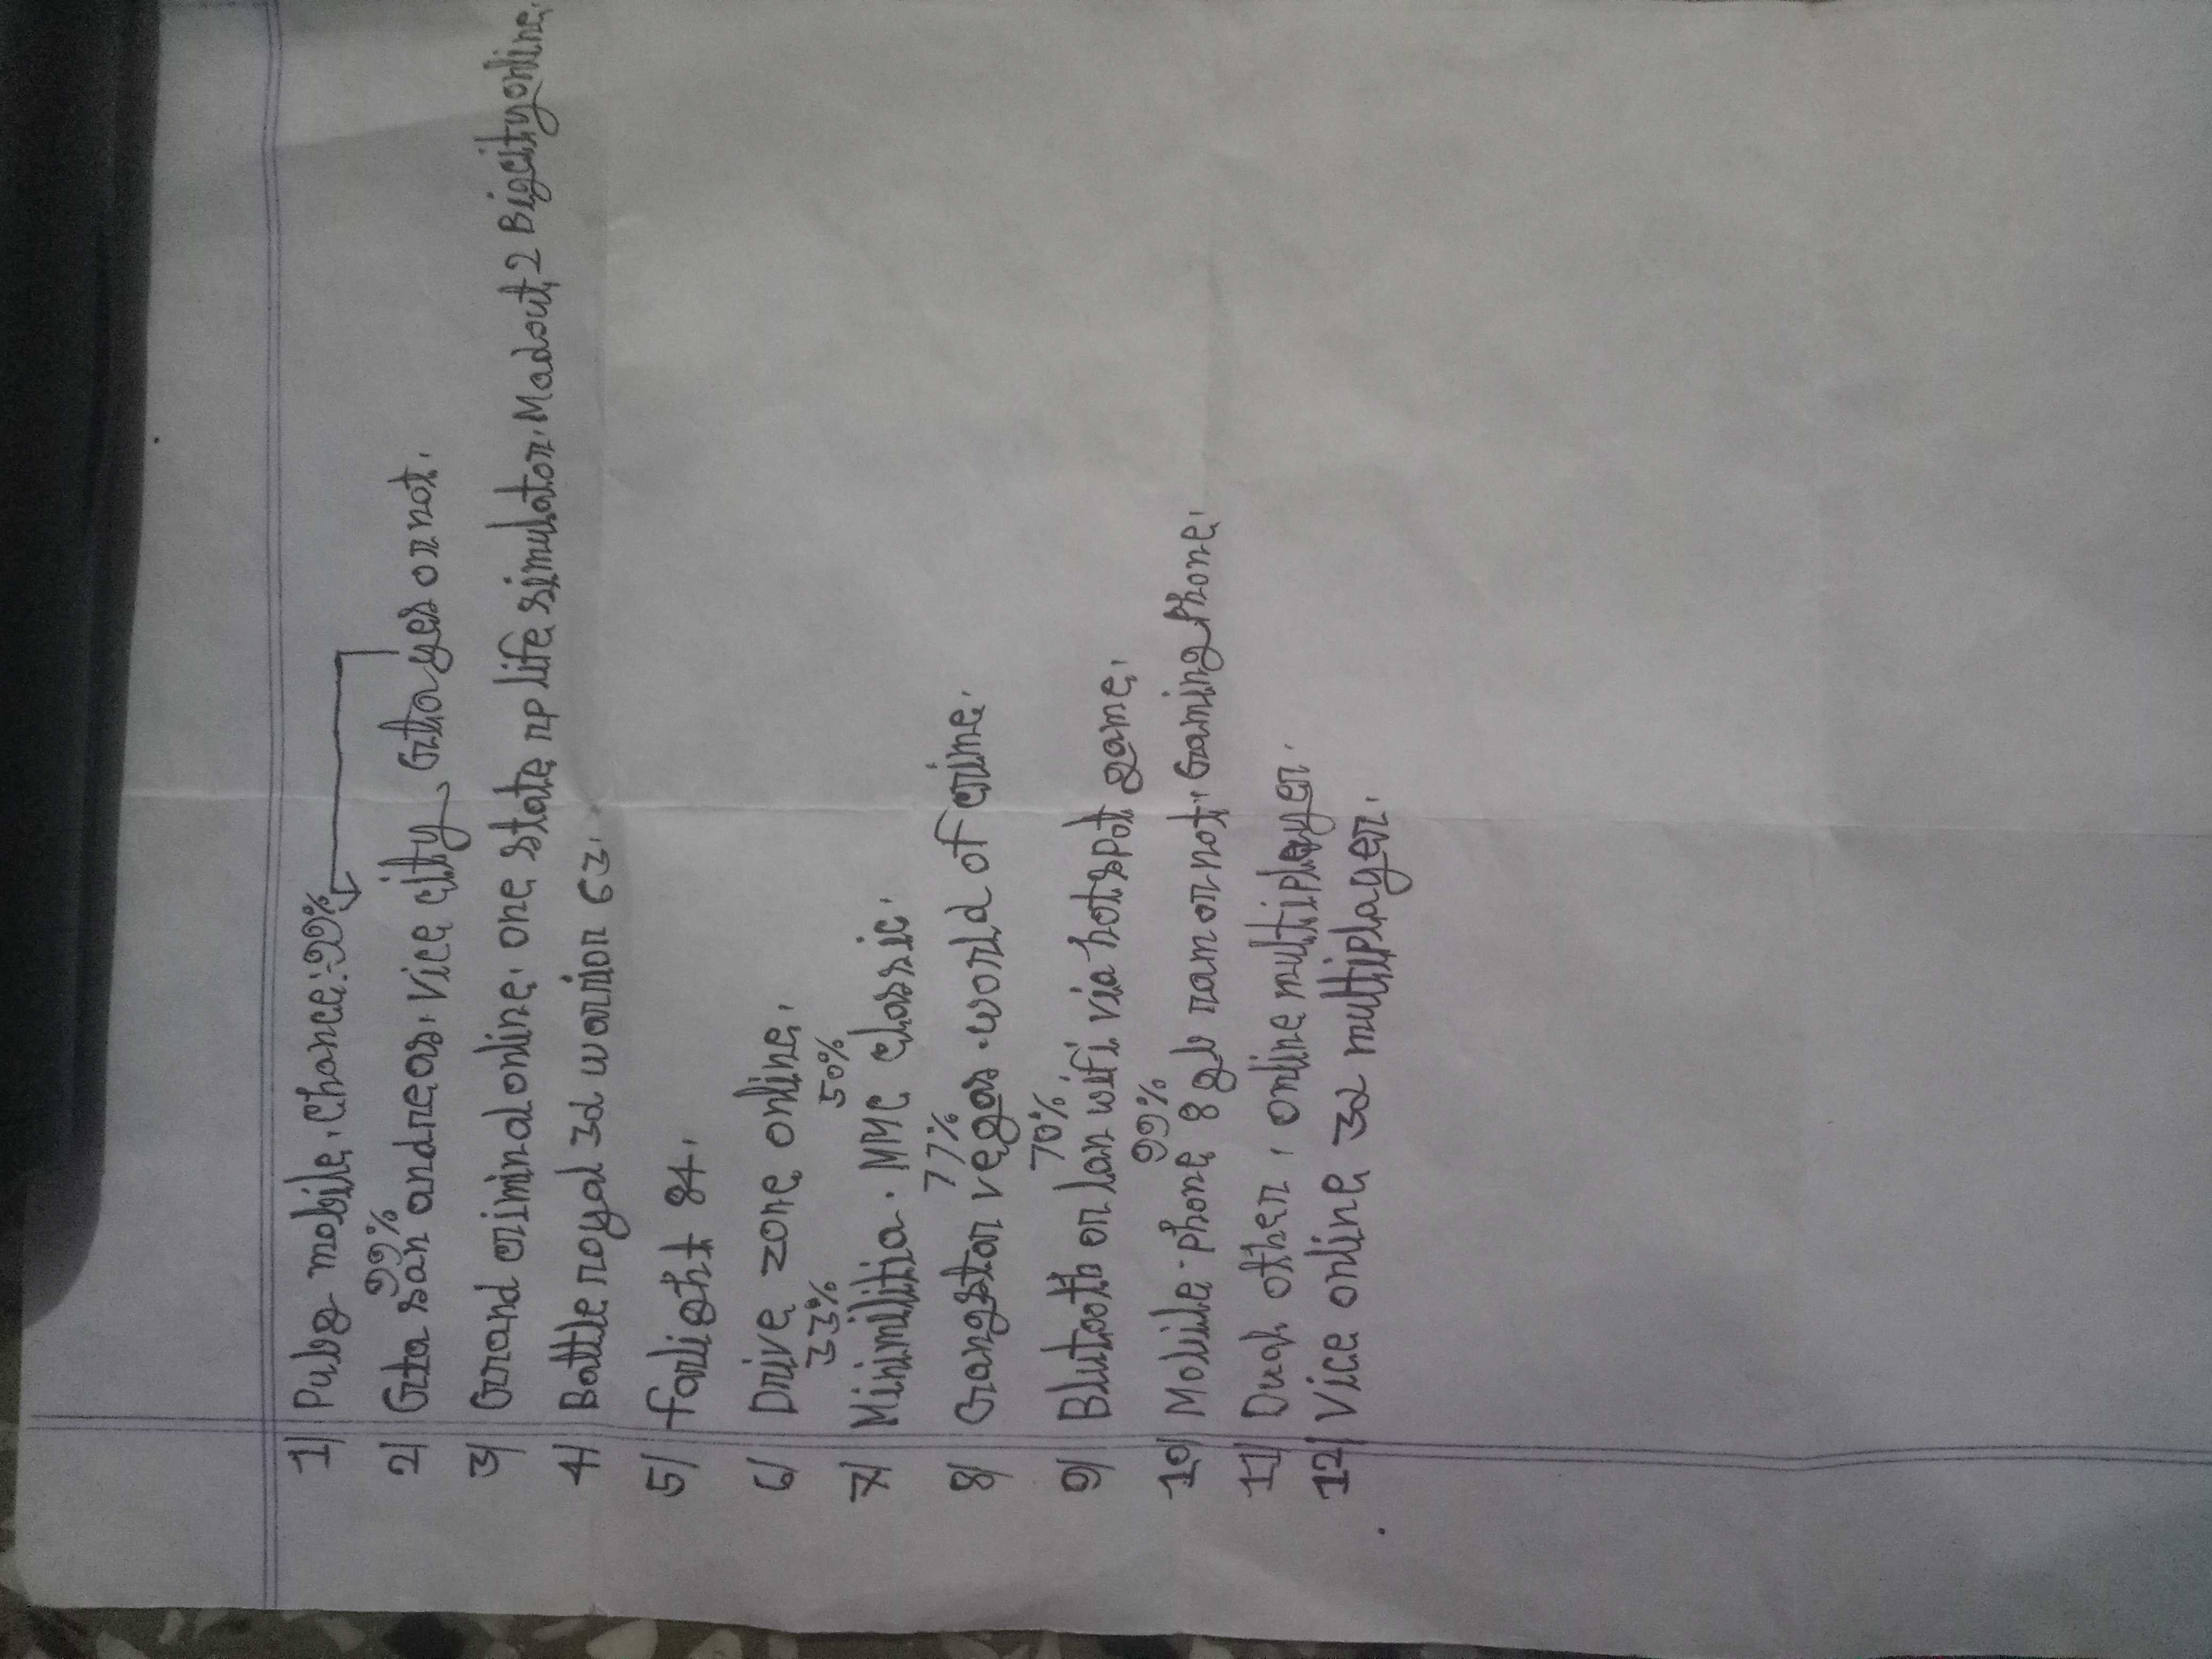 1) Pubg mobile. Chance: 99%
2) Gta san andreas. vice city Gta yes or not.
99%
3) Grand criminal online. one state rp life simulator. Madout 2 Bigcityonline.
4) Battle royal 3d warior 63.
5) farlight 84.
6) Drive zone online.
33% 50%
7) Minimilitia. MMC classic.
77%
8) Gangstar vegas. world of crime.
70%
9) Blutooth or lan wifi via hotspot game.
99%
10) Mobile. phone 8 gb ram or not. Gaming phone.
11) other, online multiplayer.
12) Vice online 3d multiplayer.